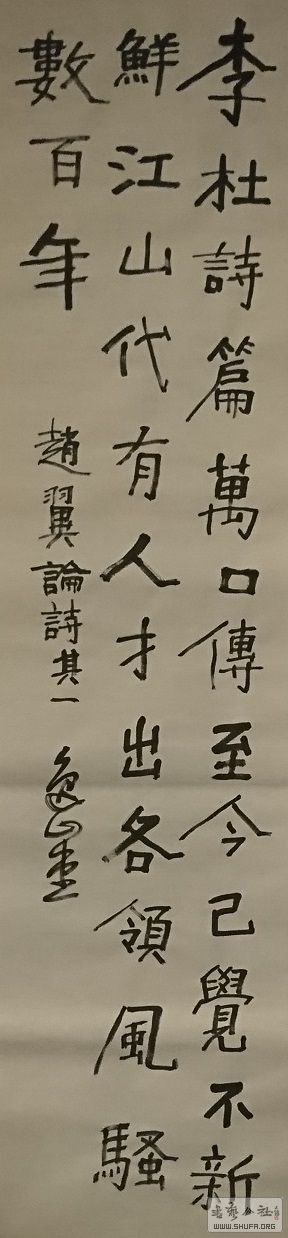 李杜詩篇萬口傳至今已覺不新
鮮江山代有人才出各領風騷
數百年
趙翼論詩其一
WWW.SHUFA.ORG